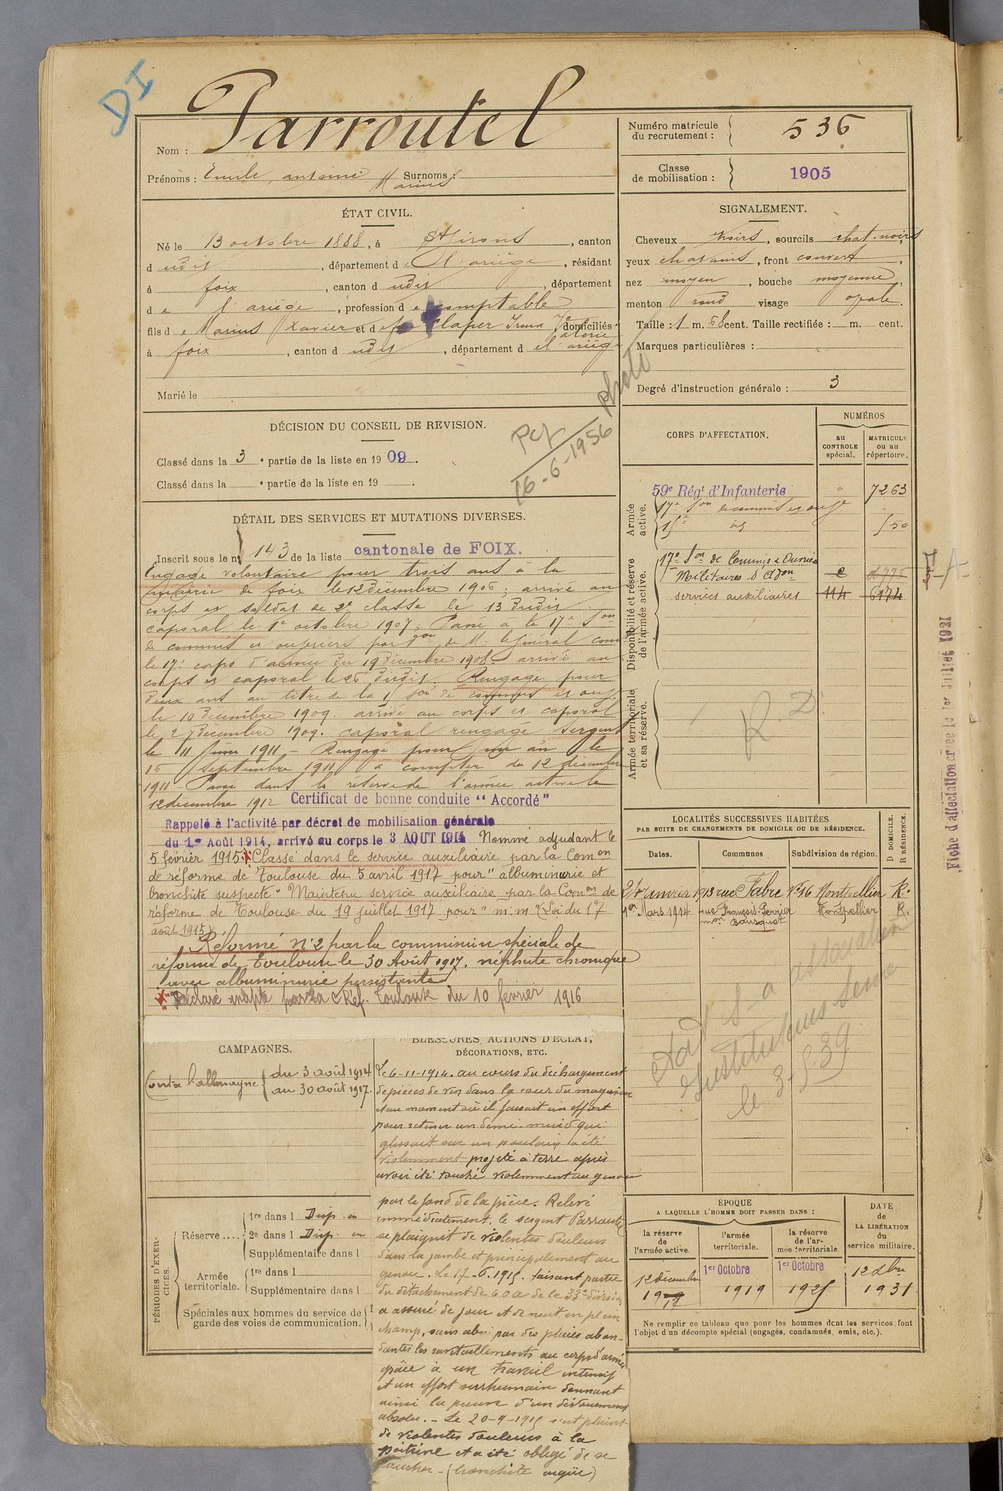 DI
Nom : Parroutel
Prénoms : Emile antoine Marius Surnoms :
Numéro matricule du recrutement : 536
Classe de mobilisation : 1905
ÉTAT CIVIL.
Né le 13 octobre 1888, à St Girons, canton
dudit, département de l'ariège, résidant
à foix, canton dudit, département
de l'ariège, profession de comptable
fils de Marius Xavier et de, domiciliés
à foix, canton dudit, département de l'ariège
Marié le
SIGNALEMENT.
Cheveux noirs, sourcils chat. noirs,
yeux chatains, front couvert,
nez moyen, bouche moyenne,
menton rond visage ovale.
Taille : 1 m. 58 cent. Taille rectifiée : m. cent.
Marques particulières :
Degré d'instruction générale : 3
DÉCISION DU CONSEIL DE REVISION.
Classé dans la 3e partie de la liste en 1909.
Classé dans la e partie de la liste en 19 .
16-6-1956 photo
DÉTAIL DES SERVICES ET MUTATIONS DIVERSES.
Inscrit sous le n° 143 de la liste cantonale de FOIX.
Engagé volontaire pour trois ans à la
de foix le 12 décembre 1906 ; arrivé au
corps et soldat de 2e classe le 13 dudit
caporal le 1er octobre 1907 ; Passé à la 17e Son
de commis et ouvriers par don de M. le Général Comt
le 17e corps d'armée du 19 décembre 1908 arrivé au
corps et caporal le 26 dudit. Rengagé pour
deux ans au titre de la Son de commis et ouv
le 10 décembre 1909. arrivé au corps et caporal
le 27 décembre 1909. caporal rengagé. Sergent
le 11 juin 1911 - Rengagé pour un an le
15 septembre 1911 à compter du 12 décembre
1911 Passé dans la réserve de l'armée active le
12 décembre 1912 Certificat de bonne conduite "Accordé"
Rappelé à l'activité par décret de mobilisation générale
du 1er Août 1914, arrivé au corps le 3 AOUT 1914 Nommé adjudant le
5 février 1915 Classé dans le service auxiliaire par la Comon
de réforme de Toulouse du 5 avril 1917 pour "albuminurie et
bronchite suspecte" Maintenu service auxiliaire par la Comon de
réforme de Toulouse du 19 juillet 1917 pour "m. m." (Loi du 17
août 1915).
Réformé N°2 par la commission spéciale de
réforme de Toulouse le 30 Août 1917. néphrite chronique
avec albuminurie persistante
Déclaré inapte par la C Réf. Toulouse du 10 février 1916
CORPS D'AFFECTATION.
NUMÉROS
AU CONTROLE spécial.
MATRICULE OU AU répertoire.
Armée active.
59e Régt d'Infanterie " 7263
17e Son de commis et ouv
Disponibilité et réserve de l'armée active.
17e Son de Commis et Ouvriers
Militaires d'Adon
services auxiliaires 114 6174
Armée territoriale et sa réserve.
R. D.
Fiche d'affectation créée le 1er Juillet 1921
LOCALITÉS SUCCESSIVES HABITÉES
PAR SUITE DE CHANGEMENTS DE DOMICILE OU DE RÉSIDENCE.
Dates. Communes Subdivision de région. D DOMICILE. R RÉSIDENCE.
13 rue Fabre N°16 Montpellier R.
1er Mars 1914 rue François Perrier Montpellier R.
mon Bousquet
association
Instituteurs
le 3-5-39
CAMPAGNES.
Contre l'allemagne du 3 août 1914
au 30 août 1917.
BLESSURES, ACTIONS D'ÉCLAT,
DÉCORATIONS, ETC.
Le 6-11-1914. au cours du déchargement
de pièces de vin dans la cour du magasin
et au moment où il faisait un effort
pour retenir un demi-muid qui
glissait sur un poulain a été
violemment projeté à terre après
avoir été touché violemment au genou
par le fond de la pièce. Relevé
immédiatement, le sergent Parroutel
se plaignit de violentes douleurs
dans la jambe et principalement au
genou. Le 17-6-1915. faisant partie
du détachement de C.O.A. de la 33e division
a assuré de jour et de nuit en plein
champ, sans abri par des pluies abon-
dantes les ravitaillements au corps d'armée
grâce à un travail intensif
et un effort surhumain donnant
ainsi la preuve d'un dévouement
absolu. - Le 20-9-1915 s'est plaint
de violentes douleurs à la
poitrine et a été obligé de se
coucher - (bronchite aigüe)
PÉRIODES D'EXERCICES.
Réserve....
1re dans l Disp. en
2e dans l Disp. en
Supplémentaire dans l
Armée territoriale.
1re dans l
Supplémentaire dans l
Spéciales aux hommes du service de garde des voies de communication.
ÉPOQUE
A LAQUELLE L'HOMME DOIT PASSER DANS :
la réserve de l'armée active.
l'armée territoriale.
la réserve de l'armée territoriale
DATE de LA LIBÉRATION du service militaire.
12 décembre 1er Octobre 1er Octobre 12 dbre
1919 1925 1931
Ne remplir ce tableau que pour les hommes dont les services font
l'objet d'un décompte spécial (engagés, condamnés, omis, etc.).